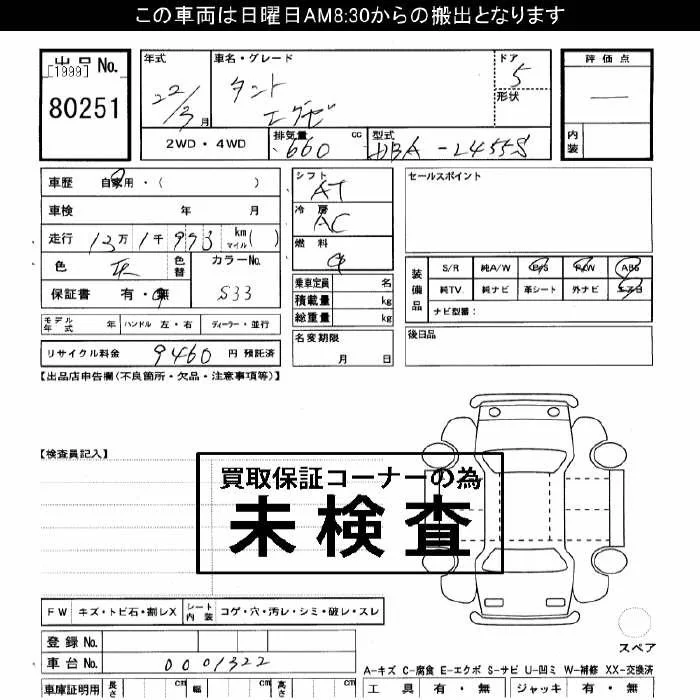 この車両は日曜日AM8:30からの搬出となります
出品 No.
[1999]
80251
年式 22/3 月
車名・グレード タント エグゼ
ドア 5
形状
評価点 —
内装
2WD・4WD
排気量 660 cc
型式 DBA-L455S
車歴 自家用・( )
車検 年 月
走行 13万1千973 km マイル( )
色 灰 色替
カラーNo. S33
保証書 有・無
シフト AT
冷房 AC
燃料
乗車定員 名
積載量 kg
総重量 kg
名変期限 月 日
セールスポイント
装備品 S/R 純A/W P/S P/W ABS
純TV 純ナビ 革シート 外ナビ エアB
ナビ型番:
後日品
モデル年式 年 ハンドル 左・右 ディーラー・並行
リサイクル料金 9460 円 預託済
【出品店申告欄(不良箇所・欠品・注意事項等)】
【検査員記入】
買取保証コーナーの為
未検査
FW キズ・トビ石・割レX シート内装 コゲ・穴・汚レ・シミ・破レ・スレ
登録 No.
車台 No. 0001322
スペア
A-キズ C-腐食 E-エクボ S-サビ U-凹ミ W-補修 XX-交換済
車庫証明用 長さ cm 幅 cm 高さ cm
工具 有・無 ジャッキ 有・無